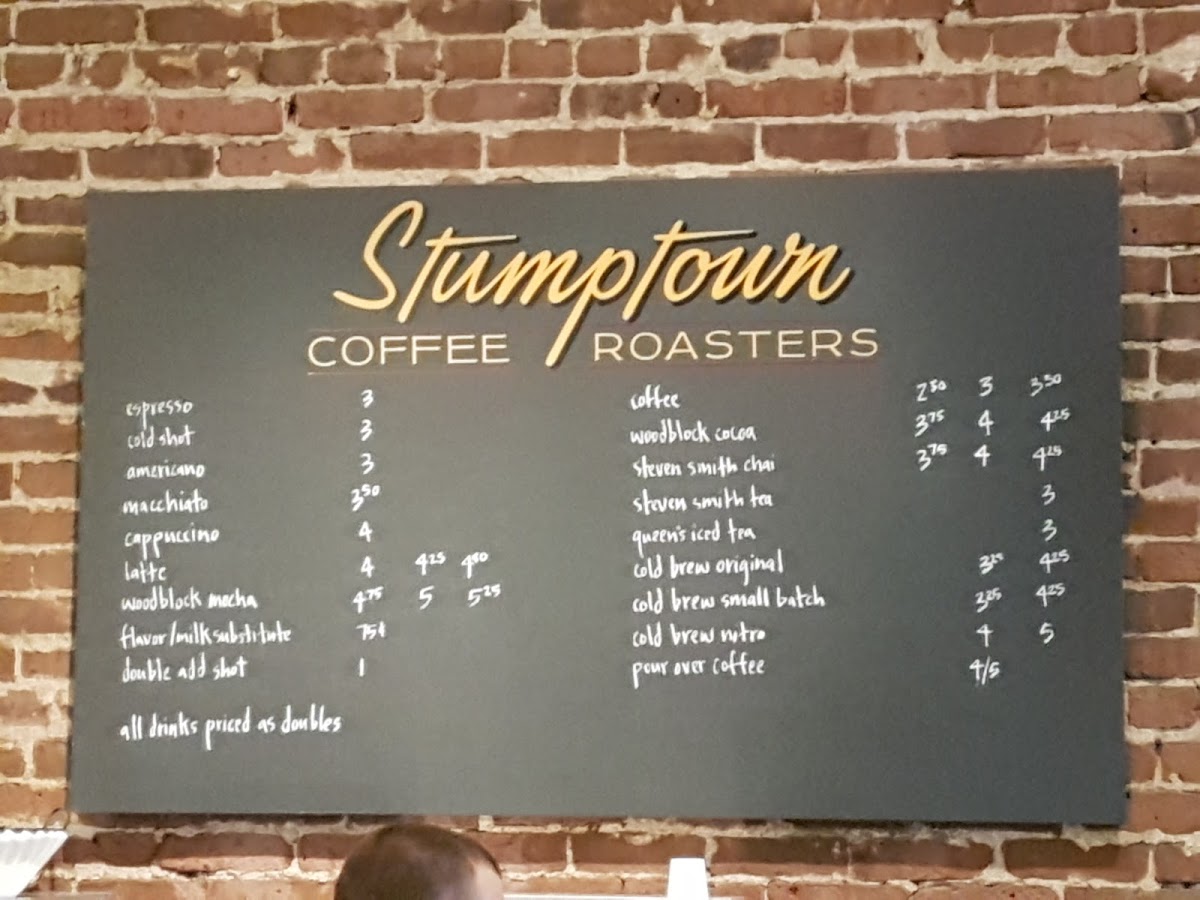 Stumptown
COFFEE ROASTERS
espresso 3
cold shot 3
americano 3
macchiato 3 50
cappuccino 4
latte 4 4 25 4 50
woodblock mocha 4 75 5 5 25
flavor/milk substitute 75¢
double add shot 1
all drinks priced as doubles
coffee 2 50 3 3 50
woodblock cocoa 3 75 4 4 25
steven smith chai 3 75 4 4 25
steven smith tea 3
queen's iced tea 3
cold brew original 3 25 4 25
cold brew small batch 3 25 4 25
cold brew nitro 4 5
pour over coffee 4/5